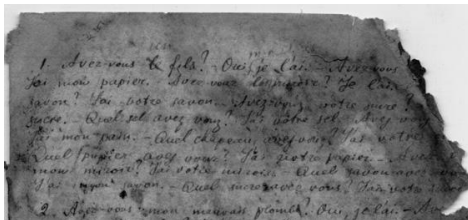 1. Avez-vous le fils? - Oui, je l'ai. - Avez-vous
J'ai mon papier. Avez-vous le miroir? Je l'ai.
savon? J'ai votre savon. - Avez-vous votre sucre?
sucre. - Quel sel avez vous? J'ai votre sel. Avez vous
J'ai mon pain. - Quel chapeau avez-vous? J'ai votre
Quel papier avez vous? J'ai votre papier. - Avez
mon miroir? J'ai votre miroir. - Quel savon avez vous
J'ai mon savon. - Quel sucre avez vous? J'ai votre sucre
2. Avez-vous mon mauvais plomb? Oui, je l'ai. - Avez